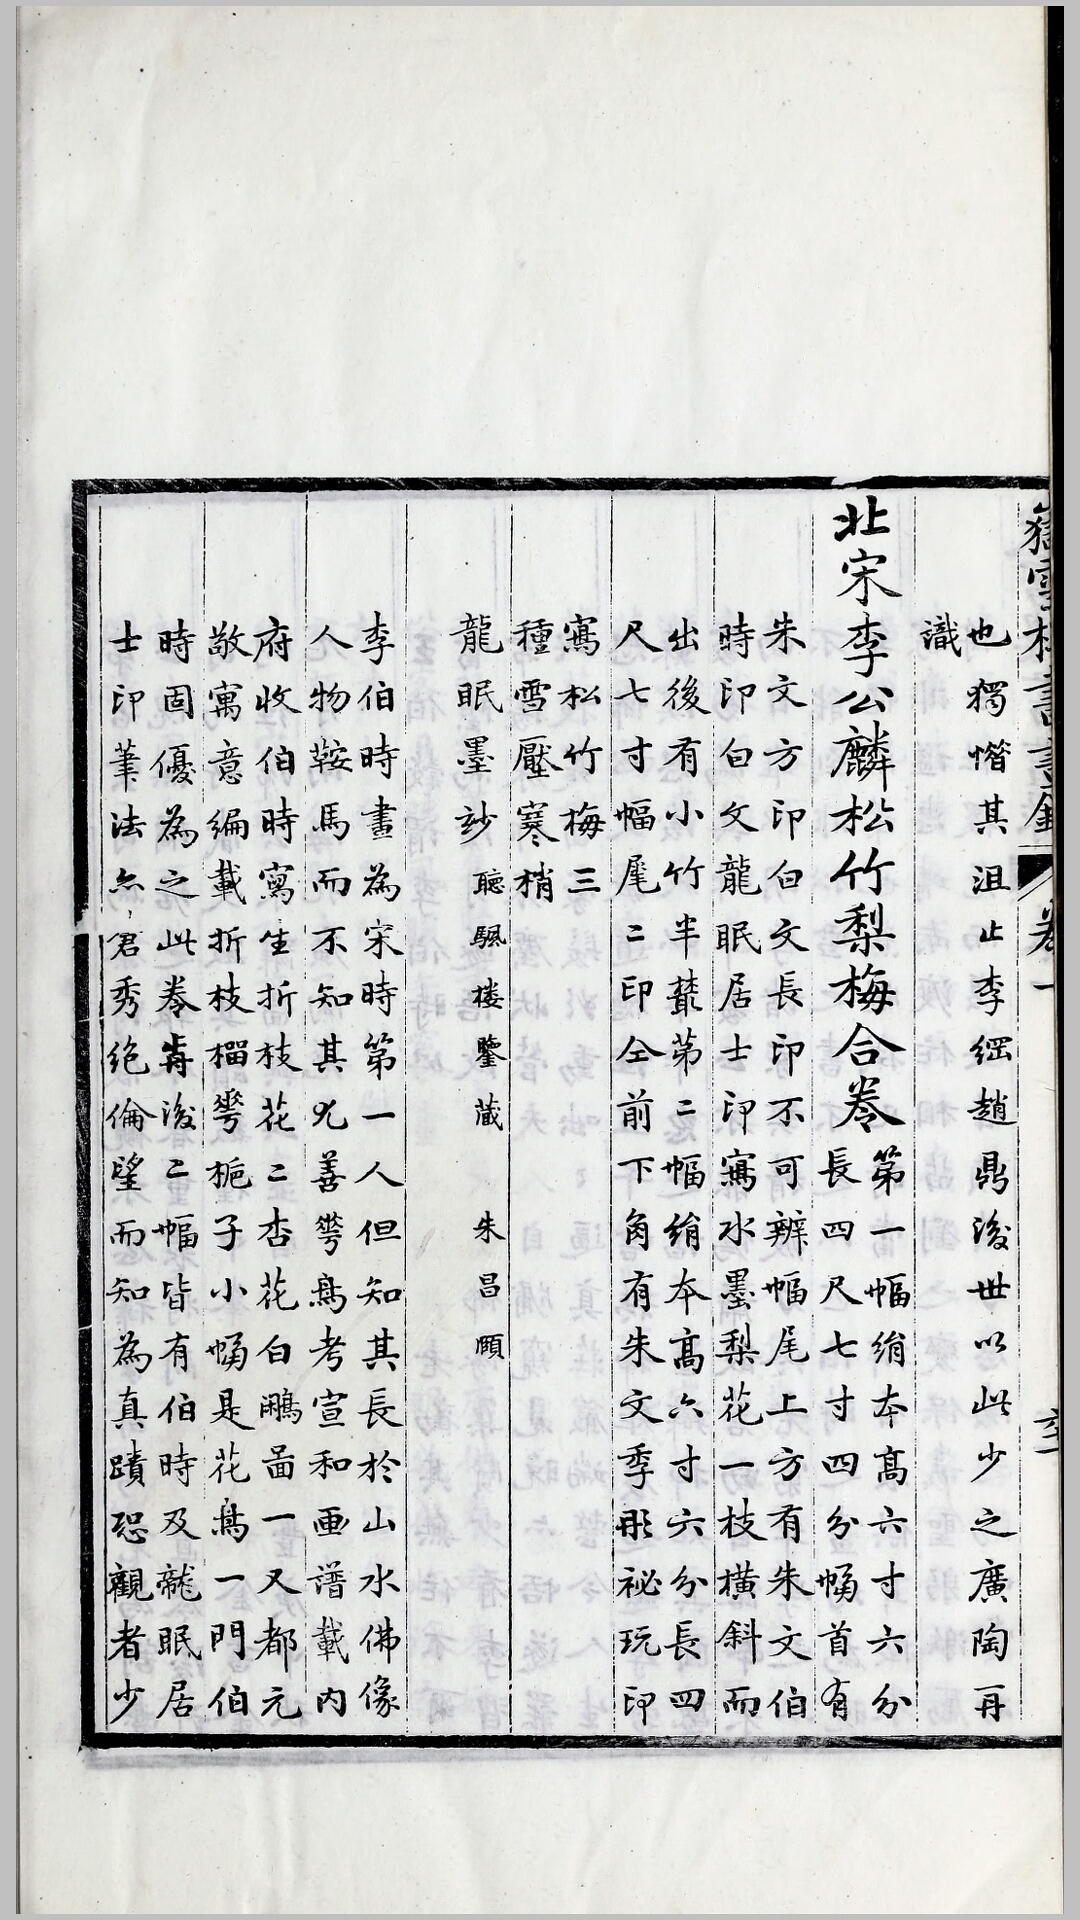 卷一
也獨惜其沮止李綱趙鼎後世以此少之廣陶再
識
北宋李公麟松竹梨梅合卷
第一幅絹本高六寸六分
長四尺七寸四分幅首有
朱文方印白文長印不可辨幅尾上方有朱文伯
時印白文龍眠居士印寫水墨梨花一枝橫斜而
出後有小竹半叢第二幅絹本高六寸六分長四
尺七寸幅尾二印仝前下角有朱文季彤祕玩印
寫松竹梅三
種雪壓寒梢
龍眠墨妙
聽颿樓鑒藏 朱昌頤
李伯時畫為宋時第一人但知其長於山水佛像
人物鞍馬而不知其尤善花鳥考宣和画譜載內
府收伯時寫生折枝花二杏花白鷴圖一又都元
敬寓意編載折枝榴花梔子小幅是花鳥一門伯
時固優為之此卷前後二幅皆有伯時及龍眠居
士印筆法亦秀絕倫望而知為真蹟恐觀者少